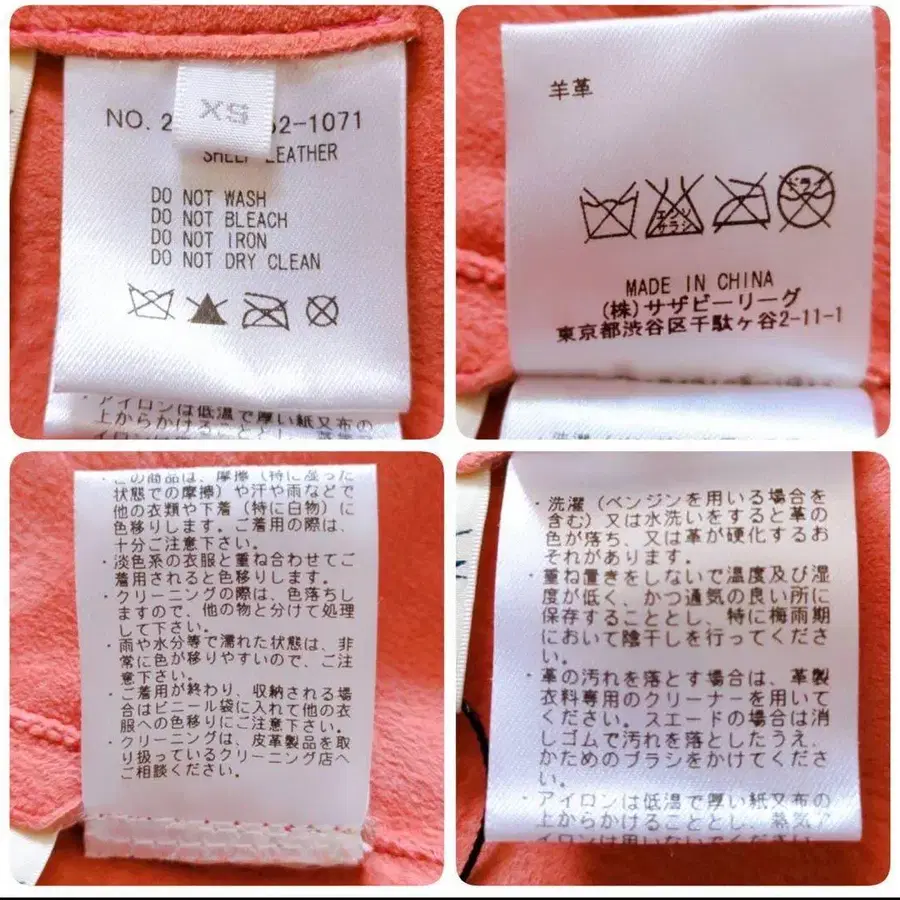 XS
NO. 2 62-1071
SHEEP LEATHER
DO NOT WASH
DO NOT BLEACH
DO NOT IRON
DO NOT DRY CLEAN
・アイロンは低温で厚い紙又布の
上からかけることとし、蒸気ア
羊革
エンソ
サラシ
ドライ
MADE IN CHINA
(株)サザビーリーグ
東京都渋谷区千駄ヶ谷2-11-1
・この商品は、摩擦(特に湿った
状態での摩擦)や汗や雨などで
他の衣類や下着(特に白物)に
色移りします。ご着用の際は、
十分ご注意下さい。
・淡色系の衣服と重ね合わせてご
着用されると色移りします。
・クリーニングの際は、色落ちし
ますので、他の物と分けて処理
して下さい。
・雨や水分等で濡れた状態は、非
常に色が移りやすいので、ご注
意下さい。
・ご着用が終わり、収納される場
合はビニール袋に入れて他の衣
服への色移りにご注意下さい。
・クリーニングは、皮革製品を取
り扱っているクリーニング店へ
ご相談ください。
・洗濯(ベンジンを用いる場合を
含む)又は水洗いをすると革の
色が落ち、又は革が硬化するお
それがあります。
・重ね置きをしないで温度及び湿
度が低く、かつ通気の良い所に
保存することとし、特に梅雨期
において陰干しを行ってくださ
い。
・革の汚れを落とす場合は、革製
衣料専用のクリーナーを用いて
ください。スエードの場合は消
しゴムで汚れを落としたうえ、
かためのブラシをかけてくださ
い。
・アイロンは低温で厚い紙又布の
上からかけることとし、蒸気ア
イロンは用いないでください。